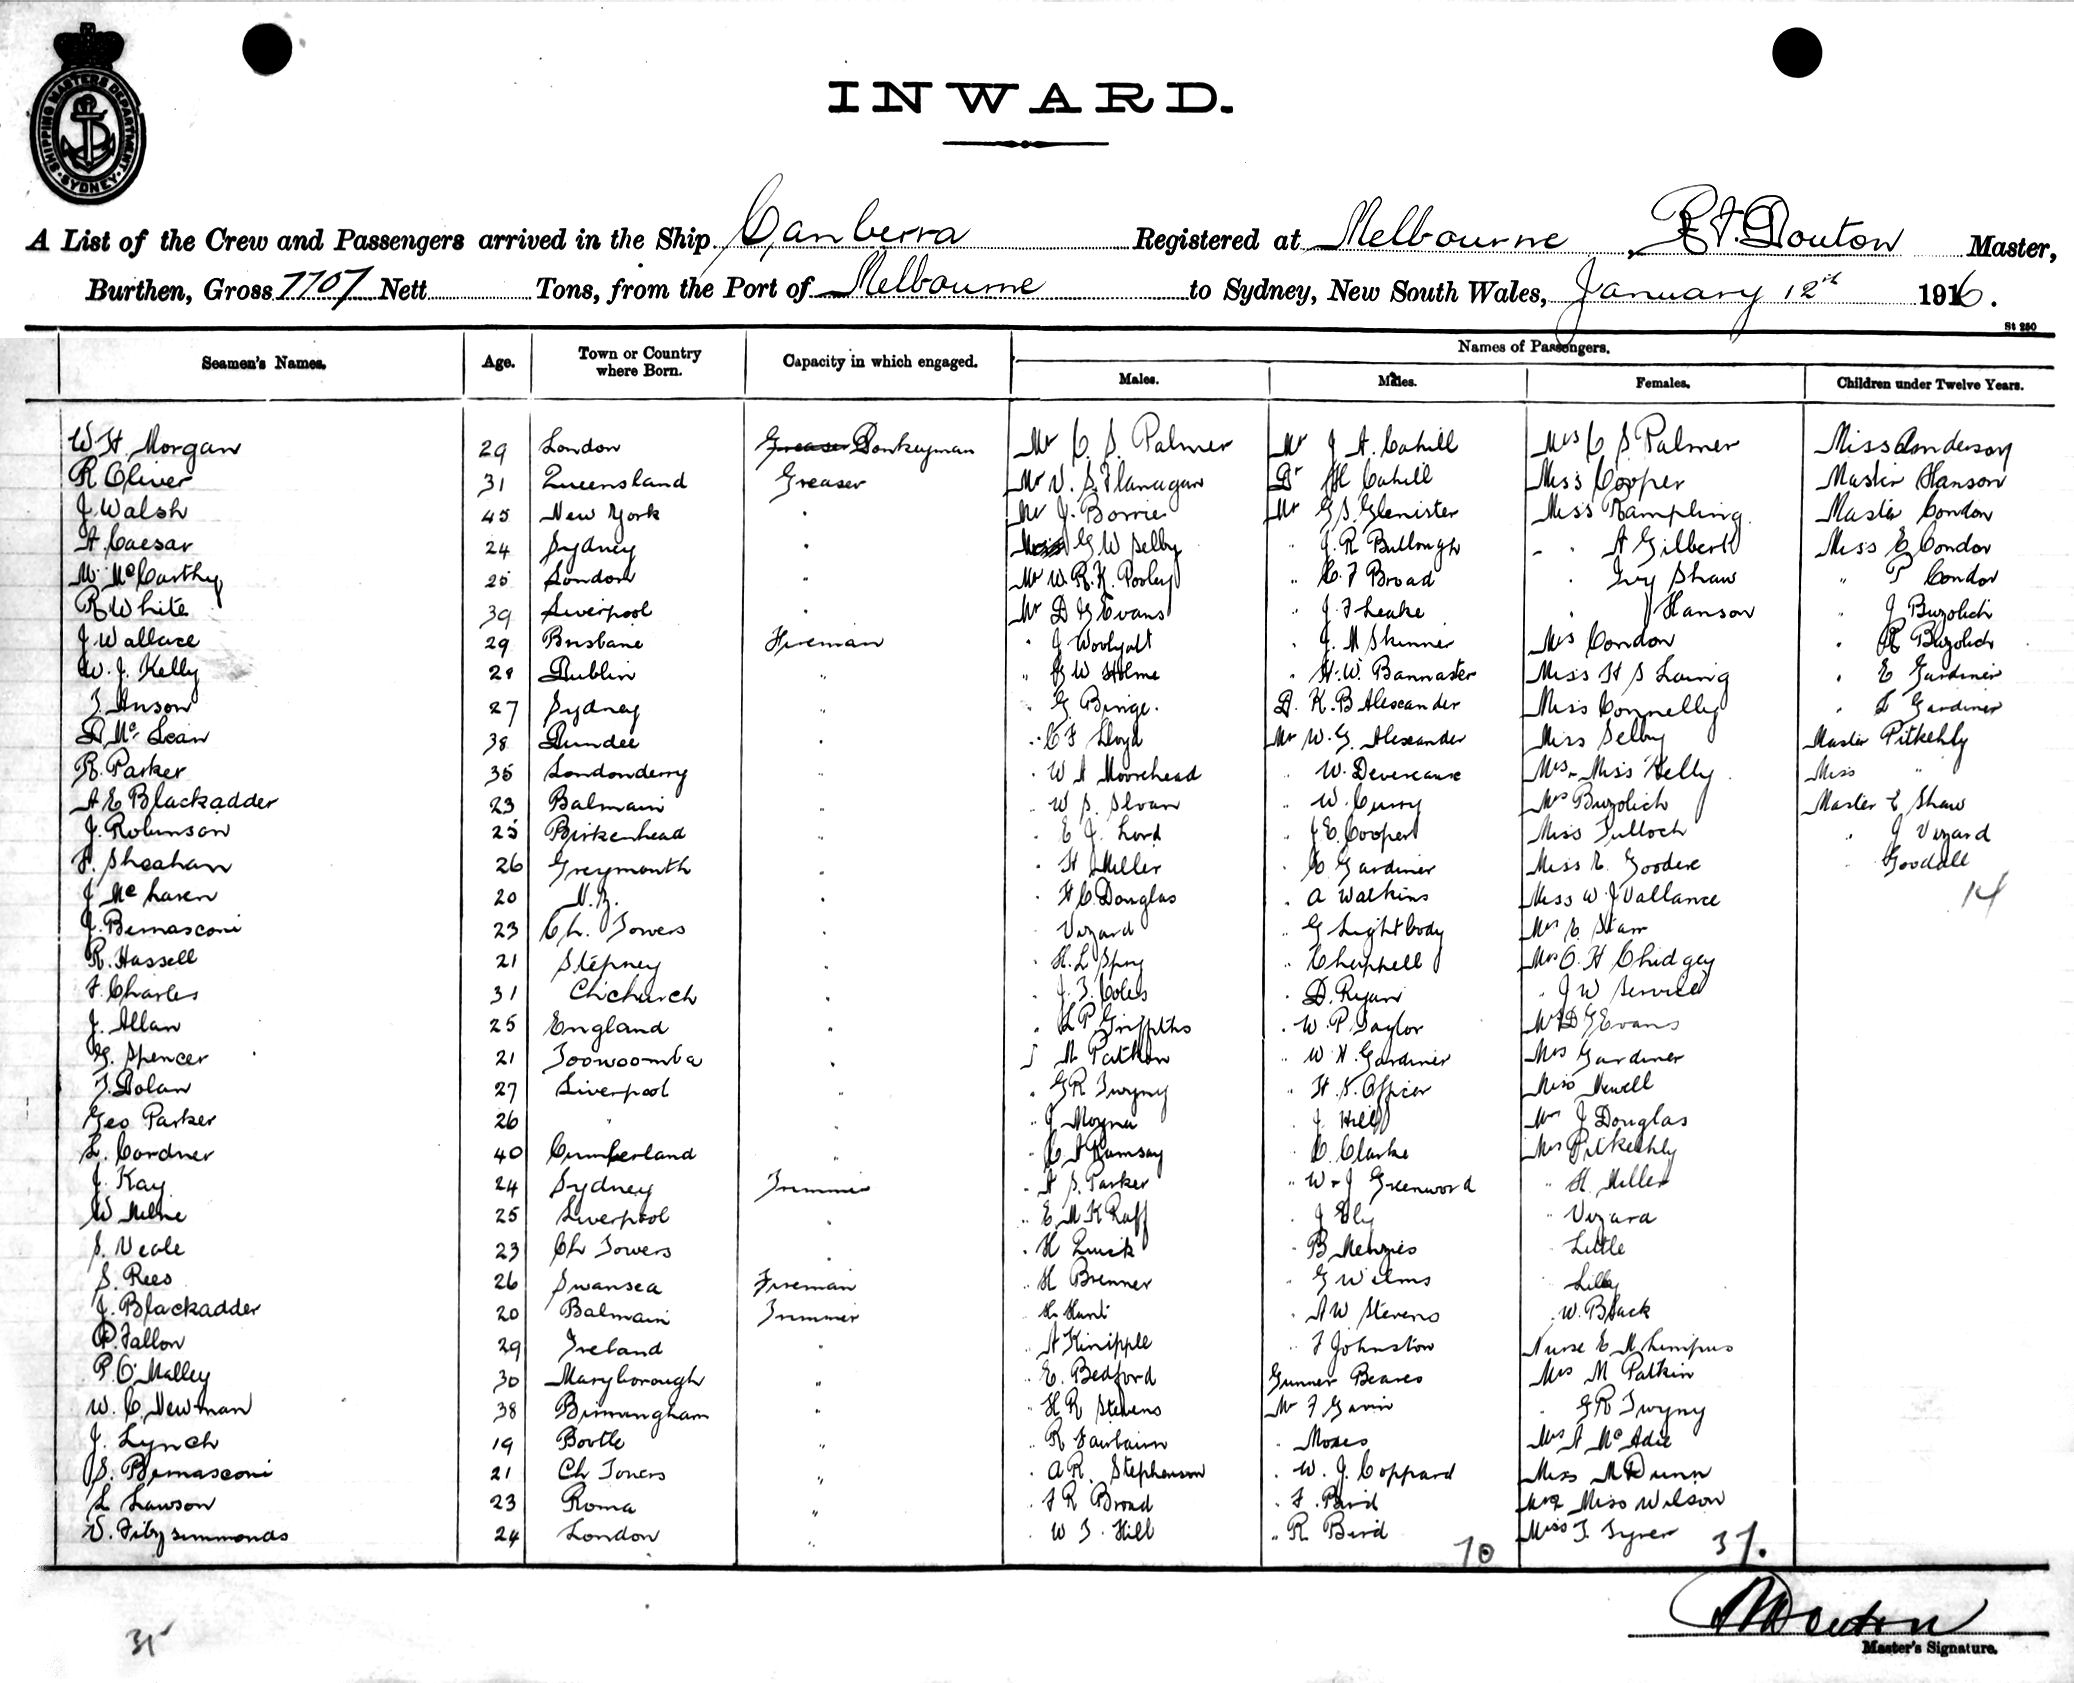 SHIPPING MASTERS DEPARTMENT · SYDNEY ·
INWARD.
A List of the Crew and Passengers arrived in the Ship Canberra Registered at Melbourne, R. F. Douton Master,
Burthen, Gross 7707 Nett Tons, from the Port of Melbourne to Sydney, New South Wales, January 12th 1916.
St 250
Seamen's Names. Age. Town or Country where Born. Capacity in which engaged. Names of Passengers.
Males. Males. Females. Children under Twelve Years.
W. H. Morgan 29 London Greaser Donkeyman Mr C. S. Palmer Mr J A. Cahill Mrs C S Palmer Miss Anderson
R Oliver 31 Queensland Greaser Mr V. S. Flanagan Dr H Cahill Miss Cooper Master Hanson
J Walsh 45 New York " Mr J. Borrie Mr G S. Glenister Miss Rampling Master Condon
A Caesar 24 Sydney " G W Selby " J. R Bullough " A Gilbert Miss E Condon
M. McCarthy 25 London " Mr W. R. K. Pooley " C. F Broad " Ivy Shaw " P Condon
R White 39 Liverpool " Mr D G Evans " J F Leake " Hanson " J Buzolich
J Wallace 29 Brisbane Fireman " J Woolyatt " J. M Skinner Mrs Condon " R Buzolich
W. J. Kelly 28 Dublin " " G W Holme " H. W. Bannaster Miss H S Laing " E Gardiner
T. Anson 27 Sydney " " G. Binge. D. K. B Alexander Miss Connelly " L Gardiner
D. McLean 38 Dundee " " C F Lloyd Mr W. G. Alexander Miss Selby Master Pitkethly
R. Parker 35 Londonderry " " W A Moorehead " W. Devereaux Mrs - Miss Kelly Miss "
A E Blackadder 23 Balmain " " W S. Sloan " W. Curry Mrs Buzolich Master E Shaw
J. Robinson 25 Birkenhead " " E J. Lord " J E. Cooper Miss Tulloch " J Vizard
F. Sheahan 26 Greymouth " " H Miller " C Gardiner Miss E. Goodere " Goodall
J McLaren 20 N.Z. " " H C. Douglas " A Watkins Miss W J Vallance 14
J. Bernasconi 23 Ch. Towers " Vizard " G Lightbody Mrs C. Starr
R. Hassell 21 Stepney " " H. L Spry " Chappell Mrs O. H Chidgey
F. Charles 31 Chchurch " " J. T. Coles " D. Ryan " J W Service
J. Allan 25 England " " L P. Griffiths " W. P. Taylor Mrs D G Evans
G. Spencer 21 Toowoomba " M Patkin " W. H. Gardiner Mrs Gardiner
T. Dolan 27 Liverpool " " G R Twyny " H. S. Officer Miss Newell
Geo Parker 26 " " J Moyna " J Hill Mrs J Douglas
L. Cordner 40 Cumberland " " C A Ramsay " C. Clarke Mrs Pitkethly
J. Kay 24 Sydney Trimmer " A S. Parker " W. J Greenwood " H. Miller
W Milne 25 Liverpool " " E M K Raff " J Ely " Vizard
S. Veale 23 Ch Towers " " H Quick " B Menzies Little
S. Rees 26 Swansea Fireman " H Brenner " G Wilms Lilly
J. Blackadder 20 Balmain Trimmer H. Hunt " A W Stevens W. Black
P. Fallon 29 Ireland " A Kinipple " F Johnston Nurse E M Limpus
P. O'Malley 30 Maryborough " " E. Bedford Gunner Beaves Mrs M Patkin
W. C. Newman 38 Birmingham " " H R Stevens Mr F Gavin " G R Twyny
J. Lynch 19 Bootle " " R Fairbairn " Moses Mrs A McAdie
S. Bernasconi 21 Ch Towers " " A R. Stephenson " W. J. Coppard Miss M Dunn
L Lawson 23 Roma " " F R Broad " F. Bird Miss Wilson
V. Fitzsimmonds 24 London " " W T. Hill " R Bird Miss T. Tyrer
70 37.
35
Master's Signature.